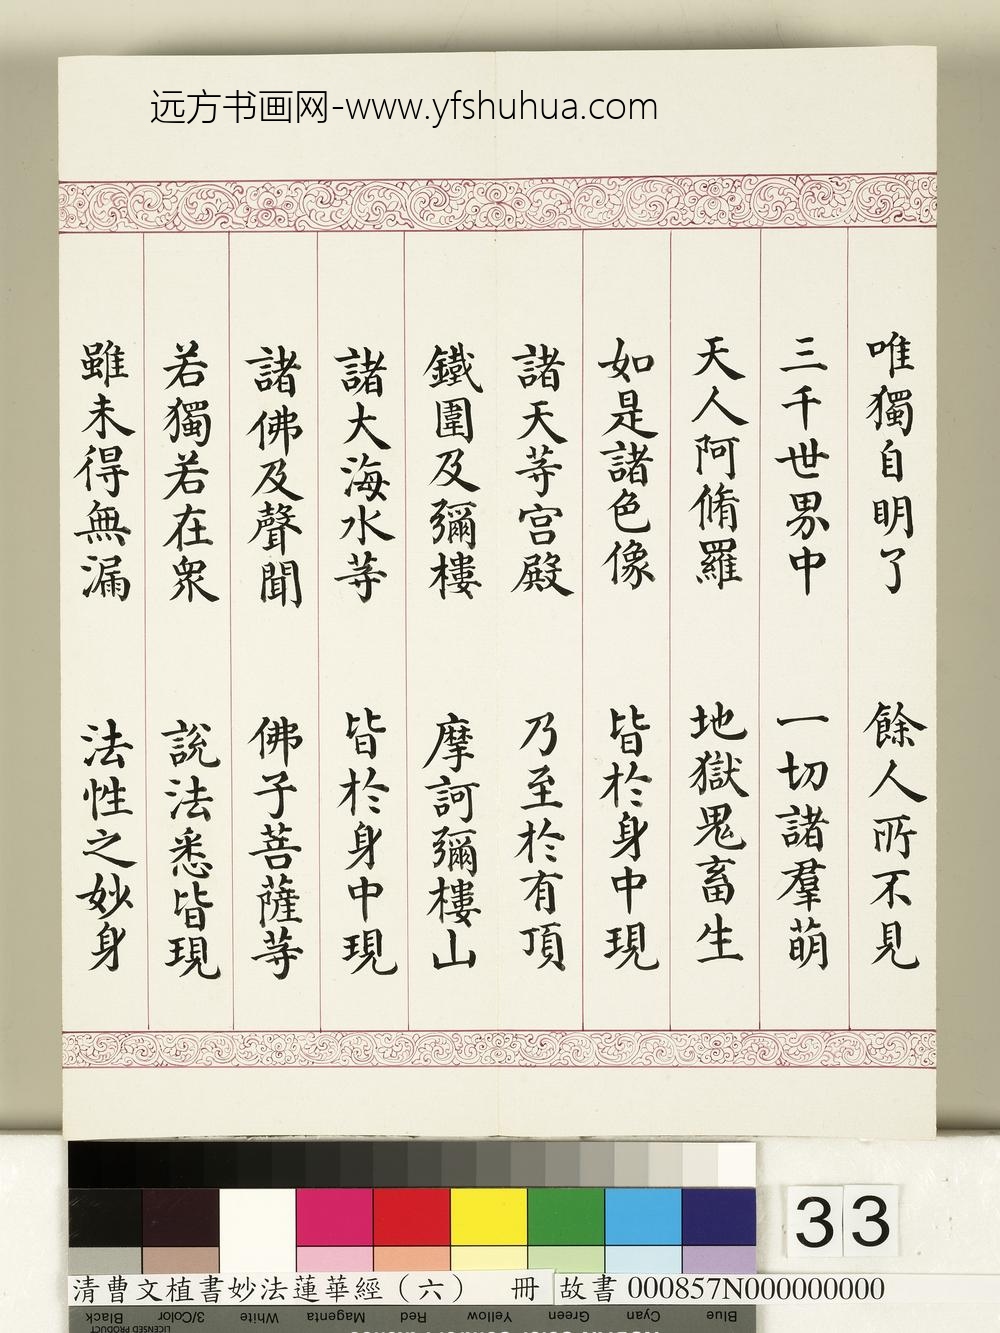 远方书画网-www.yfshuhua.com
唯獨自明了 餘人所不見
三千世界中 一切諸羣萌
天人阿脩羅 地獄鬼畜生
如是諸色像 皆於身中現
諸天等宮殿 乃至於有頂
鐵圍及彌樓 摩訶彌樓山
諸大海水等 皆於身中現
諸佛及聲聞 佛子菩薩等
若獨若在衆 說法悉皆現
雖未得無漏 法性之妙身
33
清曹文植書妙法蓮華經（六） 冊 故書 000857N000000000
Black 3/Color White Magenta Red Yellow Green Cyan Blue
LICENSED PRODUCT